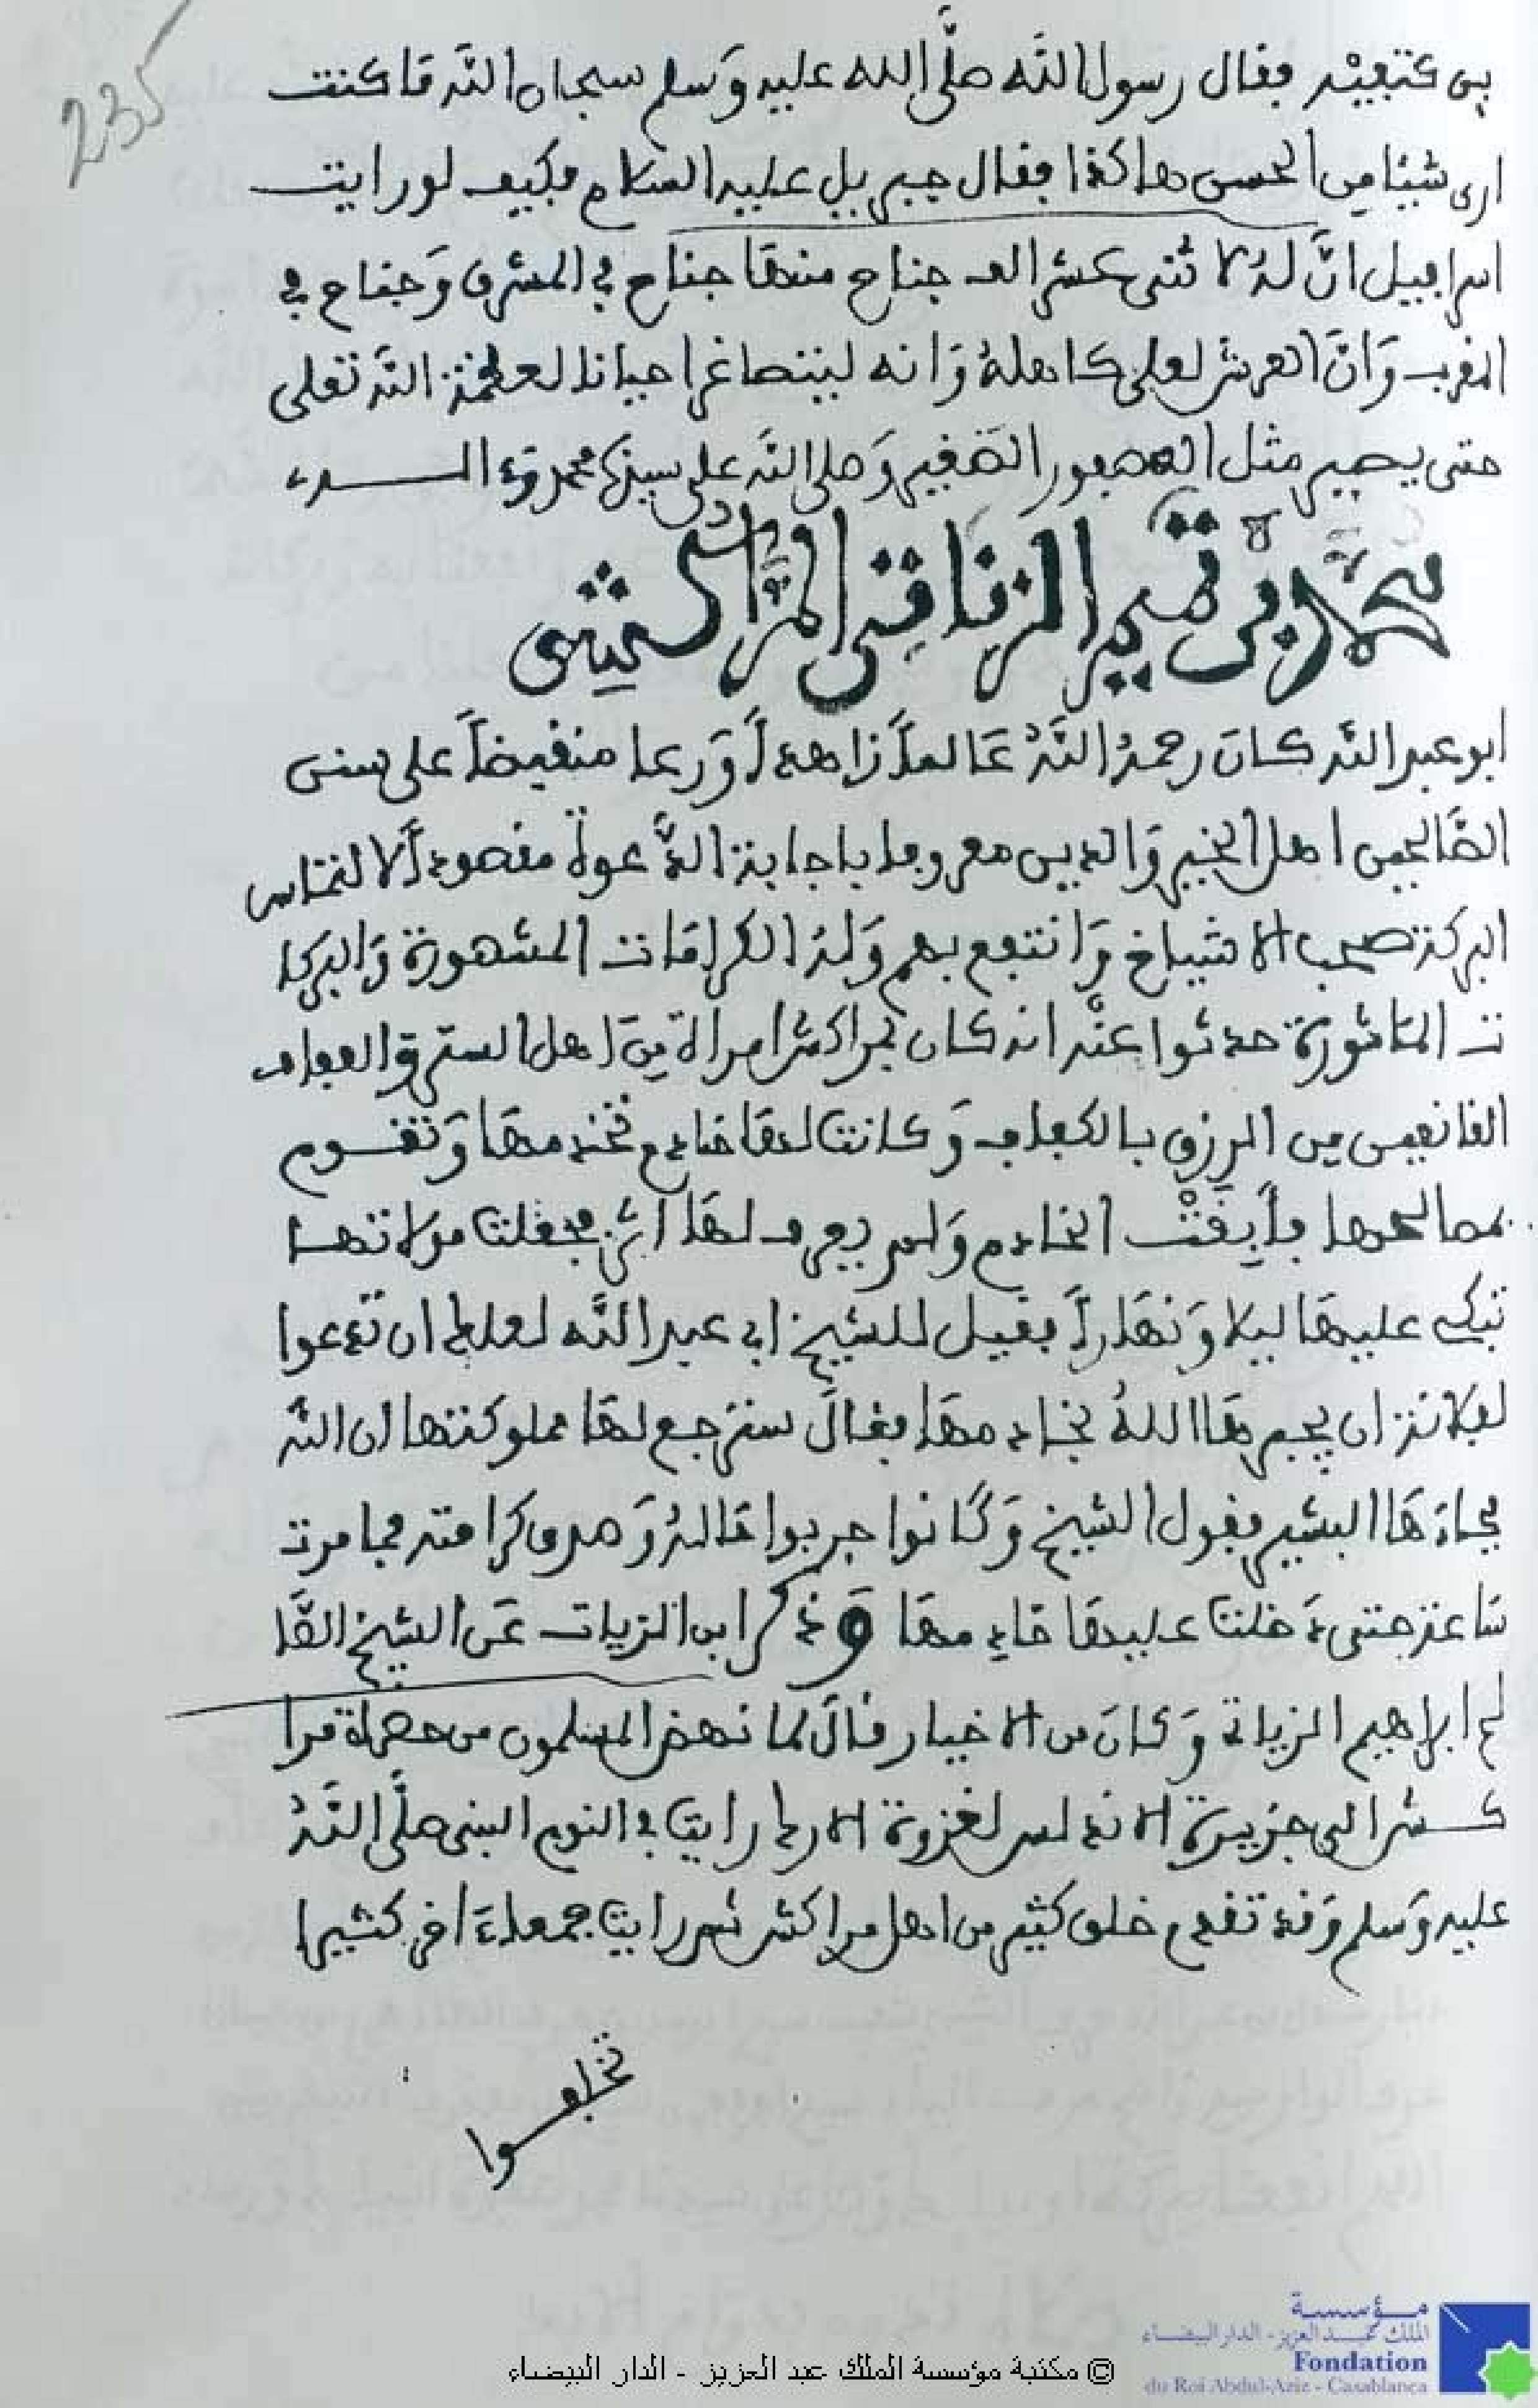 235
بين كتفيه فقال رسول الله صلَّى الله عليه وَسلم سبحان الله مَا كنت
ارى شيئا من الحسن هاكذا فقال جبريل عليه السلام فكيف لو رايت
اسرافيل انَّ لهُ لاثنى عشر الف جناح منهَا جناح في المشرق وَجناح في
المغرب وَانَّ العرش لعلى كاهلهُ وَانه ليتصاغر احيانا لعظمة الله تعلى
حتى يصير مثل العصفور الصَّغير وَصلى الله على سيدنا محمد وَءاله
محمد بن تميم الزناتى المرَّاكشى
ابو عبد الله كانَ رحمهُ اللهُ عَالماً زاهداً وَرعا منقبضاً على سنن
الصَّالحين اهل الخير وَالدين معروفا باجابة الدَّعوة مقصوداً لالتماس
البركة صحب الاشياخ وَانتفع بهم وَلهُ الكرامَات المشهورة وَالبركا
ت المَاثورة حدثوا عنْه انه كان بمراكش امراة منَ اهل الستر والعفاف
القانعين من الرزق بالكفاف وَكانت لهَا خادم تخدمهَا وَتقوم
بمصالحها فأبقَتْ الخادم وَلم يعرف لهَا اثر فجعلت مولاتها
تبكى عليهَا ليلا وَنهَاراً فقيل للشيخ ابى عبد الله لعلك ان تدعوا
لفلانة ان يجبرهَا اللهُ بخادمهَا فقالَ سترجع لهَا مملوكتها ان الله
فجاءَهَا البشير بقول الشيخ وَكَانوا جربوا مَقالهُ وَصدق كرامته فما مرت
سَاعة حتى دَخلت عليهَا خادمهَا وَذكر ابن الزيات عَن الشيخ الصَّا
لح ابراهيم الزياتى وَكانَ من الاخيار قالَ لما نهض المسلمون من حضرة مرا
كش الى جزيرة الاندلس لغزوة الارك رايت في النوم النبى صلَّى اللهُ
عليه وَسلم وَقد تقدم خلق كثير من اهل مراكش ثم رايت جمعاءَاخر كثيرا
تخلفوا
مؤسسة
الملك عبد العزيز - الدار البيضاء
Fondation
du Roi Abdul-Aziz - Casablanca
© مكتبة مؤسسة الملك عبد العزيز - الدار البيضاء